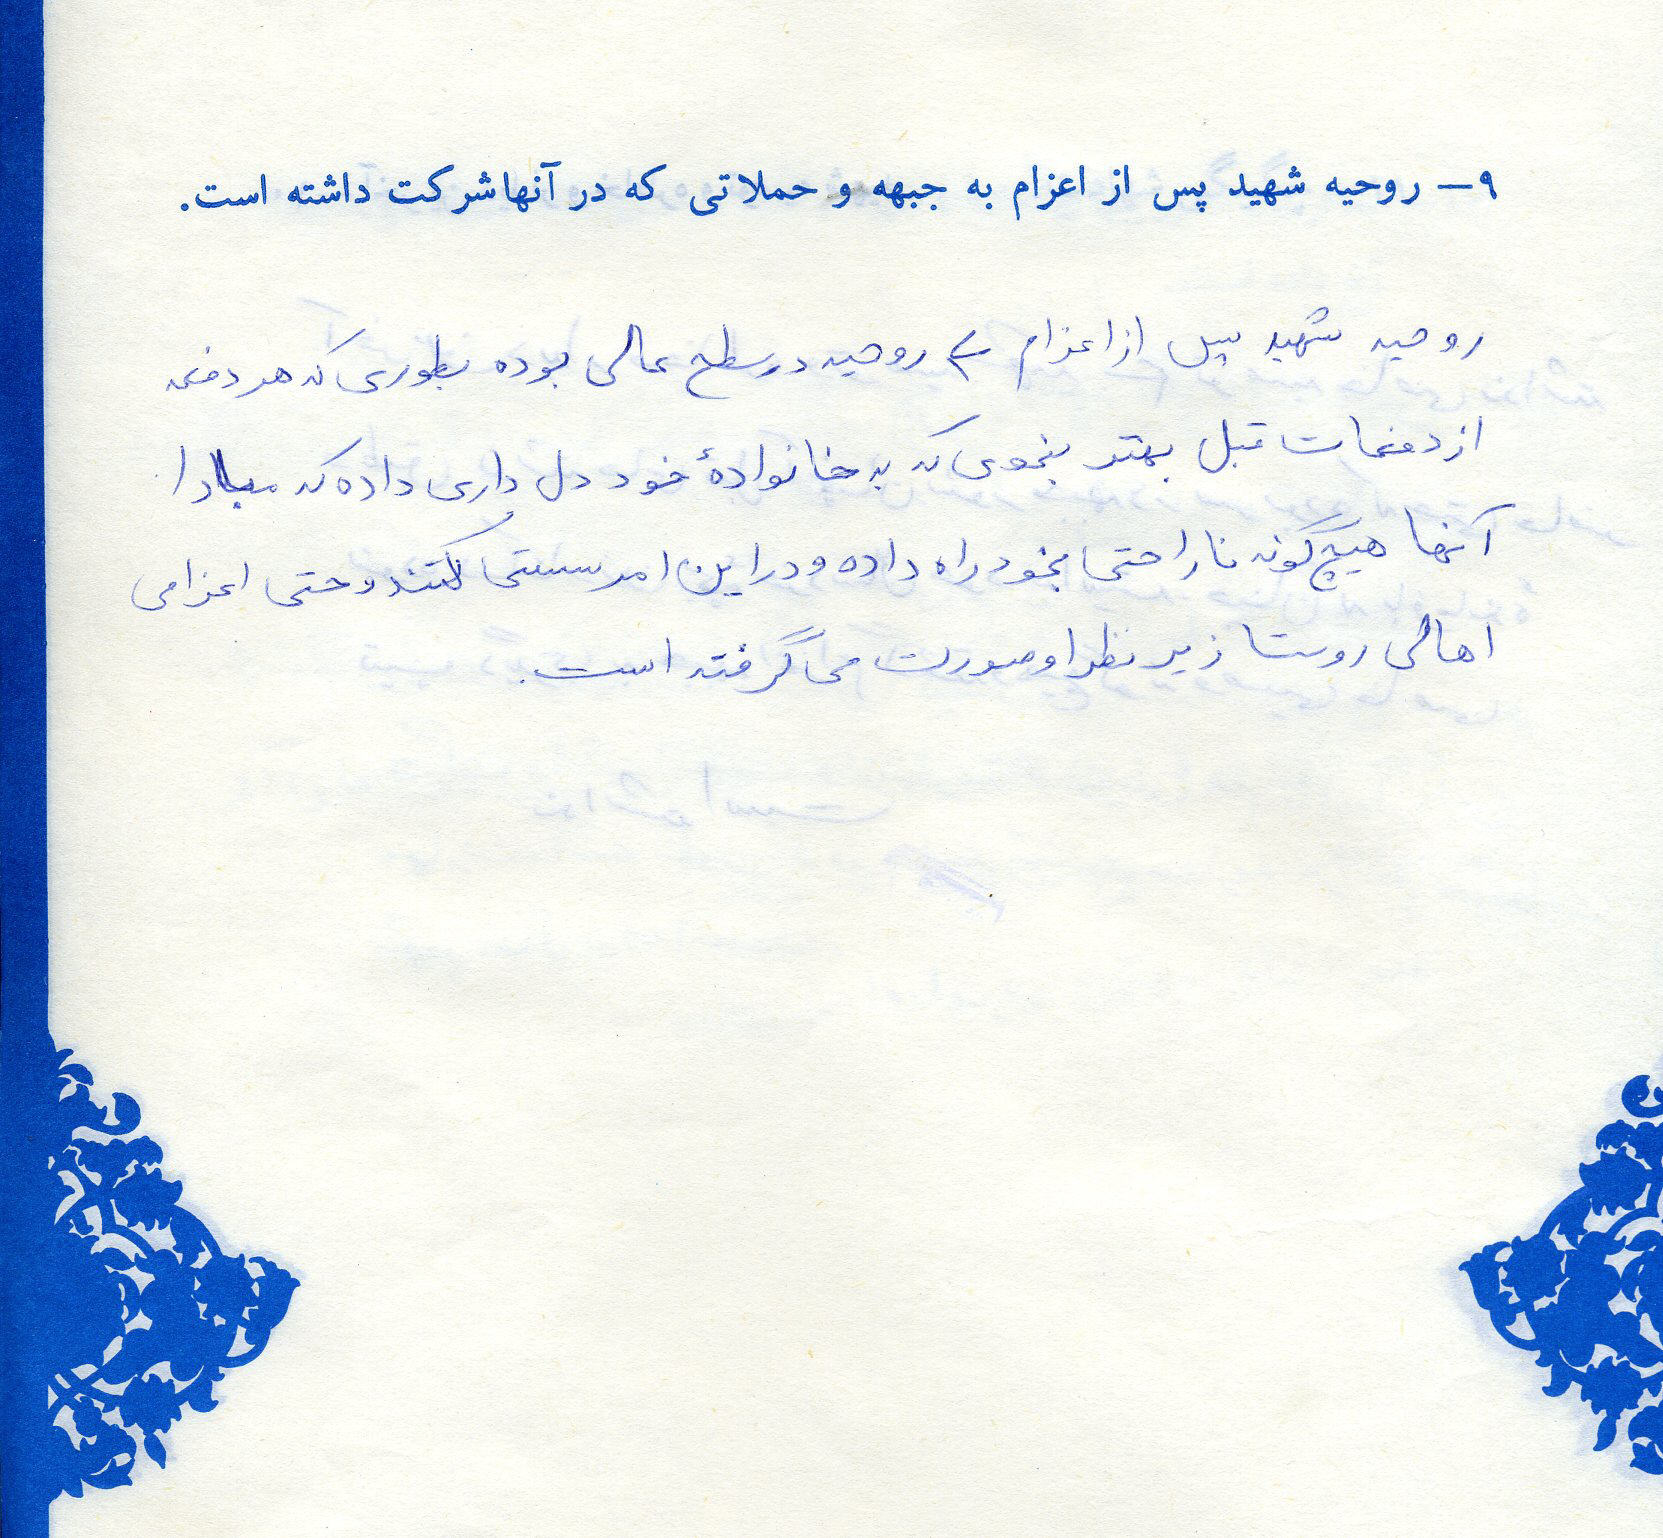 ۹– روحیه شهید پس از اعزام به جبهه و حملاتی که در آنهاشرکت داشته است.
روحیه شهید پس از اعزام روحیه در سطح عالی بوده بطوری که هر دفعه
از دفعات قبل بهتر بنحوی که به خانوادهٔ خود دل داری داده که مبادا
آنها هیچ گونه ناراحتی بخود راه داده و در این امر سستی کنند و حتی اعزامی
اهالی روستا زیر نظر او صورت می گرفته است.